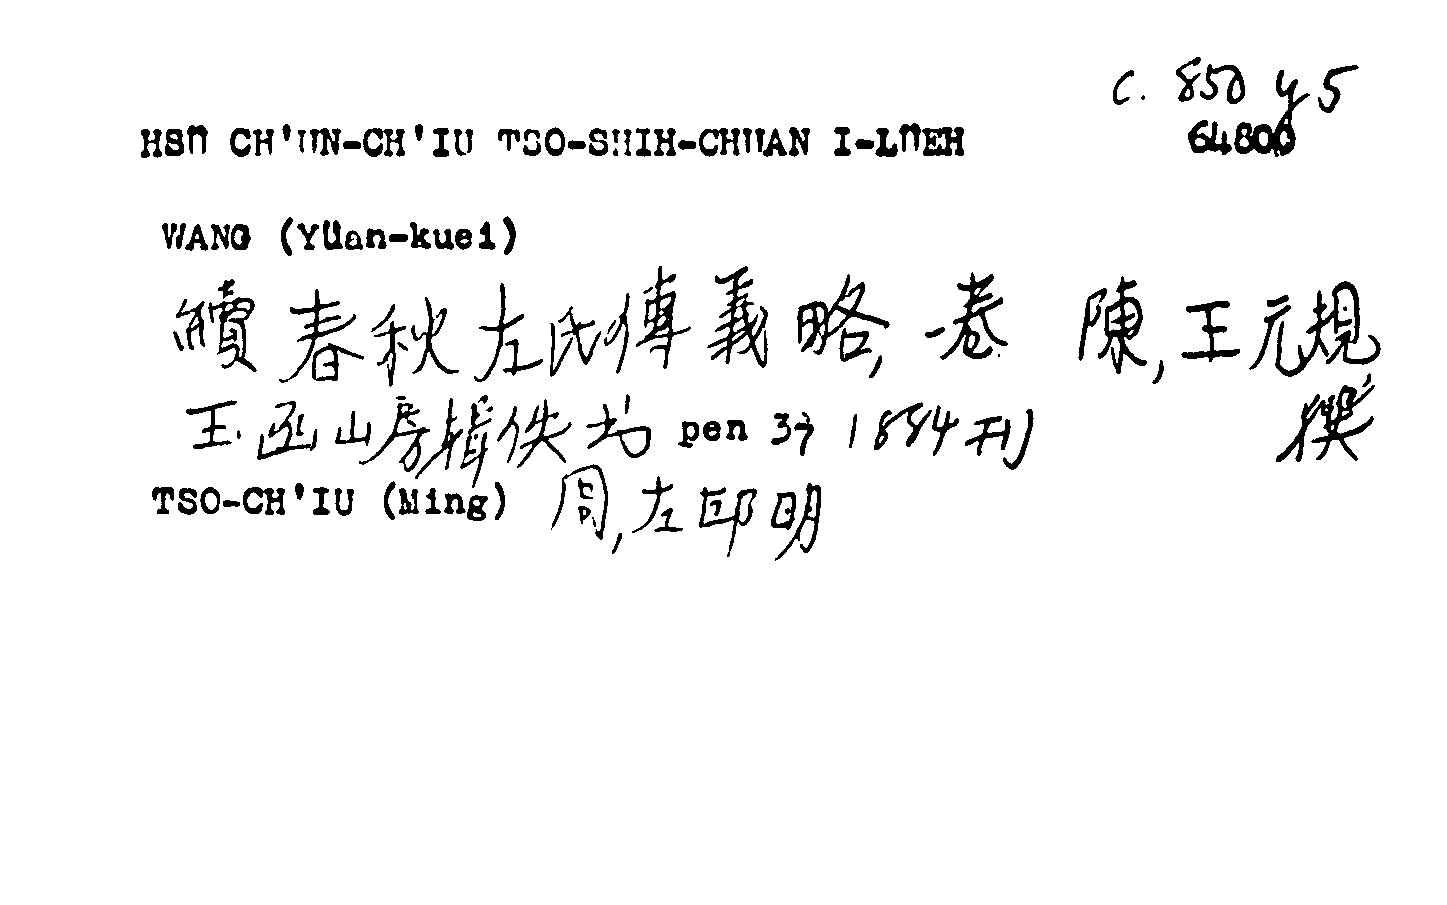 c. 850 y 5
HSÜ CH'UN-CH'IU TSO-SHIH-CHUAN I-LÜEH 64800
WANG (Yüan-kuei)
續春秋左氏傳義略, 一卷 陳, 王元規
玉函山房輯佚書 pen 37 1884刊 撰
TSO-CH'IU (Ming) 周, 左邱明